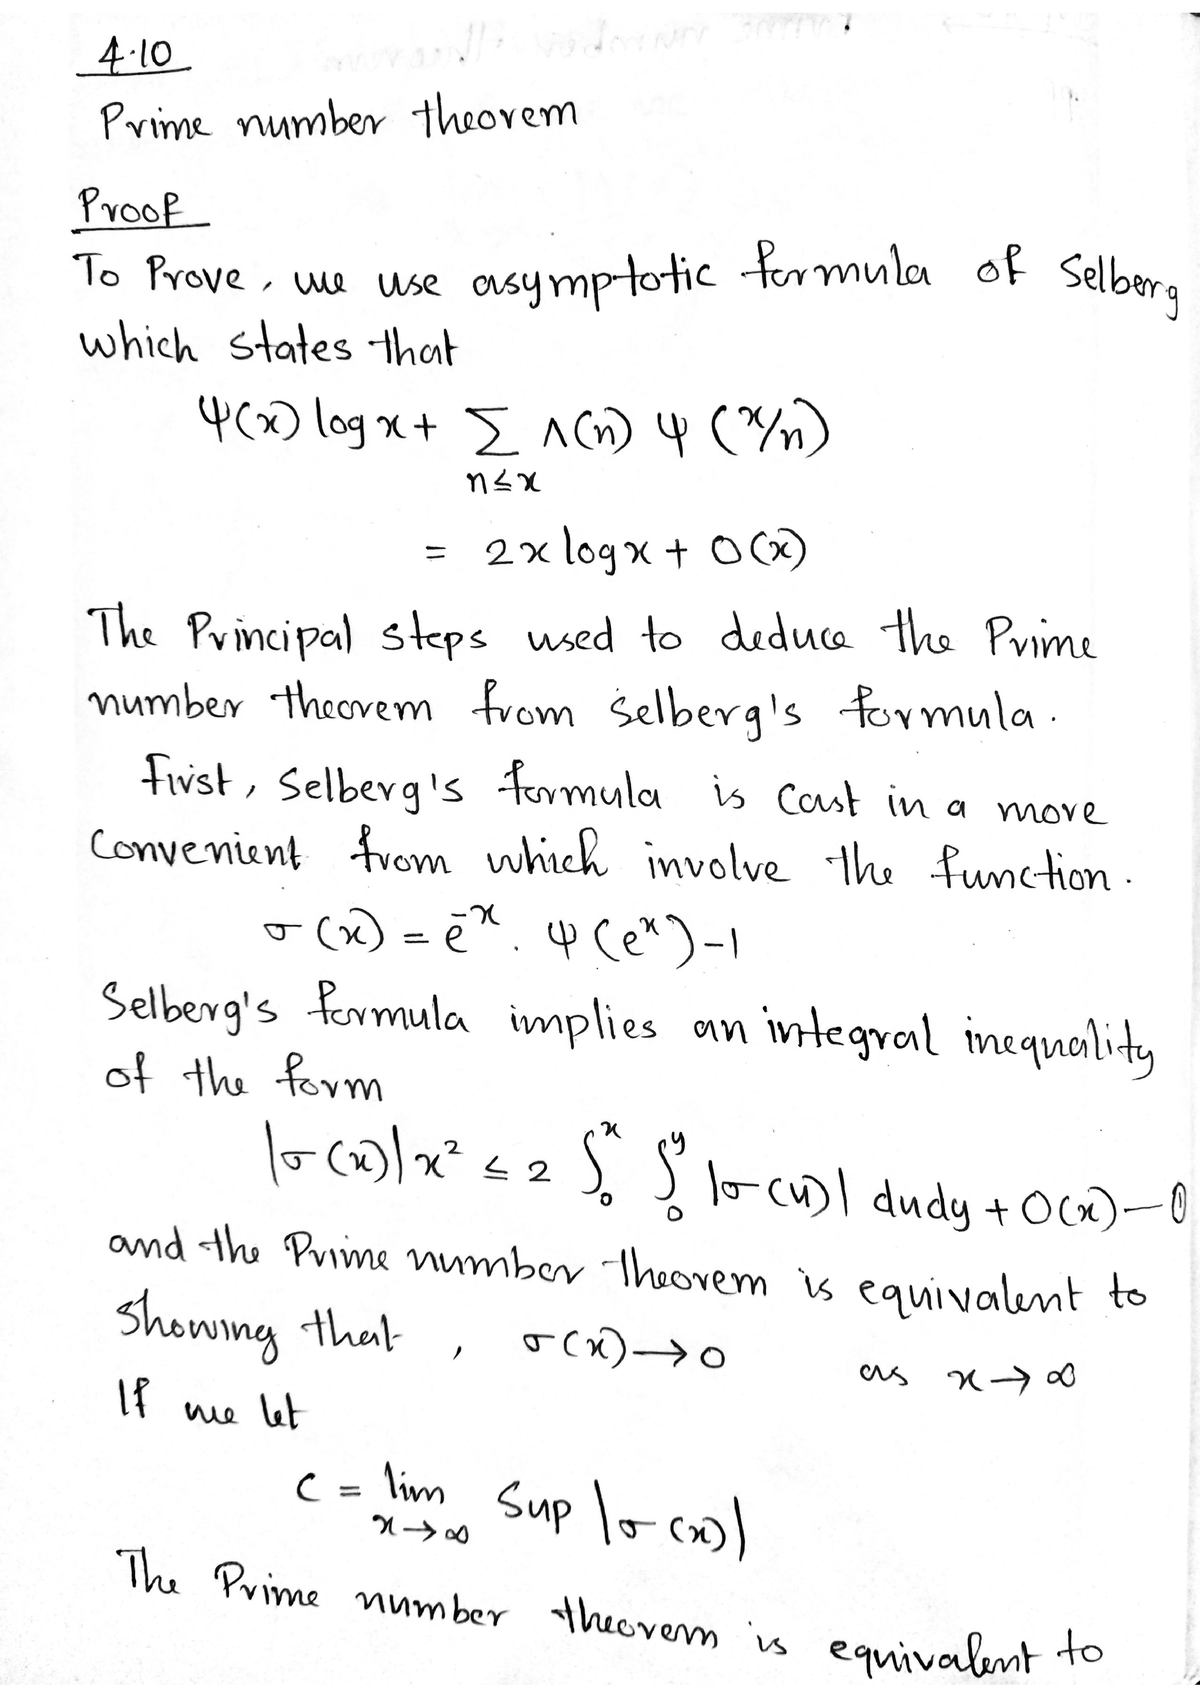 4.10
Prime number theorem
Proof
To Prove, we use asymptotic formula of Selberg
which states that
ψ(x) log x + Σ Λ(n) ψ (x/n)
n≤x
= 2x log x + O(x)
The Principal steps used to deduce the Prime
number theorem from Selberg's formula.
First, Selberg's formula is cast in a more
Convenient from which involve the function.
σ(x) = e⁻ˣ. ψ(eˣ)-1
Selberg's formula implies an integral inequality
of the form
|σ(x)| x² ≤ 2 ∫₀ˣ ∫₀ʸ |σ(u)| dudy + O(x) — ①
and the Prime number theorem is equivalent to
showing that, σ(x)→0 as x→∞
If we let
C = lim Sup |σ(x)|
x→∞
The Prime number theorem is equivalent to